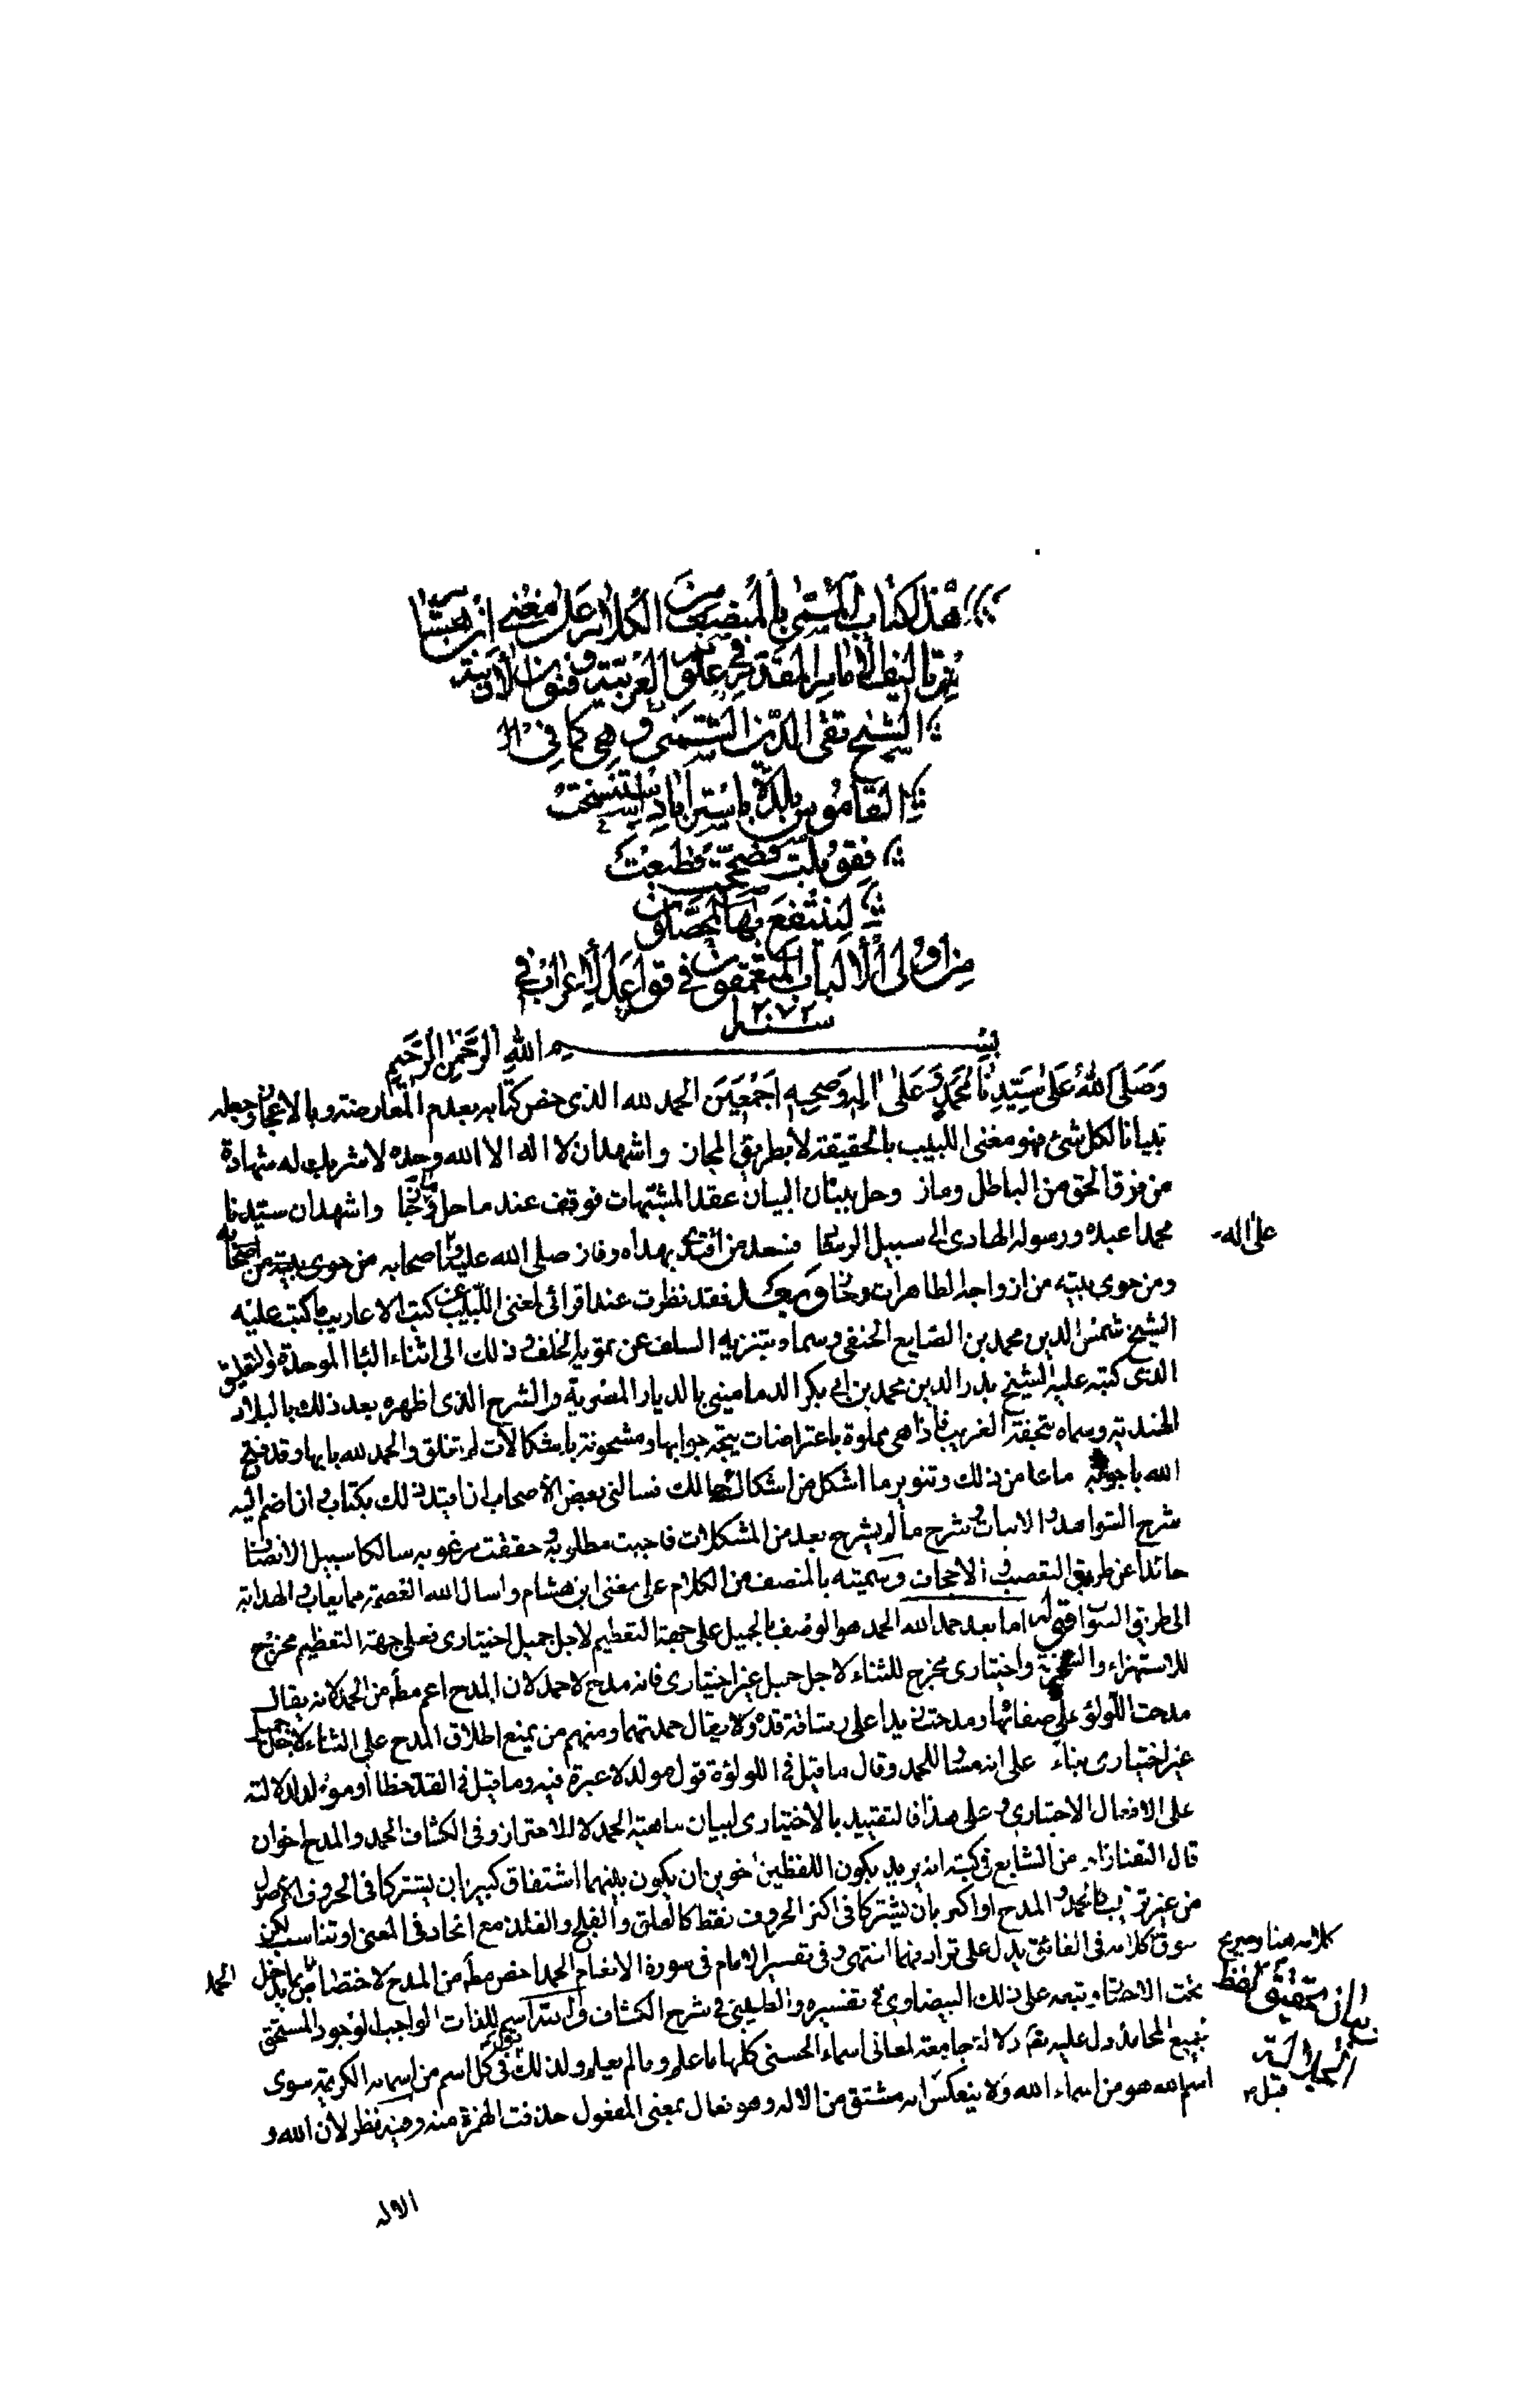 هذا الكتاب المسمى بالمنصف من الكلام على مغني ابن هشام
من تأليف الامام المقدم في علوم العربية وفنون الأدبية
الشيخ تقي الدين الشمني وهي كما في
القاموس بلدة باستراباد استنسخت
فقوبلت فصححت فطبعت
لينتفع بها المحصلون
من اولى الألباب المتعمقون في قواعد الإعراب في
سنه ١٢٧٢
بسم الله الرحمن الرحيم
وصلى الله على سيدنا محمد وعلى اله وصحبه اجمعين الحمد لله الذى خص كتابه بعدم المعارضة وبالاعجاز وجعله
تبيانا لكل شئ فهو مغنى اللبيب بالحقيقة لا بطريق المجاز واشهد ان لا اله الا الله وحده لا شريك له شهادة
من فرق الحق من الباطل وماز وحل ببنان البيان عقد المشتبهات فوقف عند ما حل وما جاز واشهد ان سيدنا
محمدا عبده ورسوله الهادى الى سبيل الرشاد فسعد من اقتدى بهداه وفاز صلى الله عليه وعلى اصحابه من حوى بيته من اصحابه
على اله
ومن حوى بيته من ازواجه الطاهرات وحاز وبعد فقد نظرت عند اقرائى لمغنى اللبيب عن كتب الاعاريب ما كتب عليه
الشيخ شمس الدين محمد بن الصايع الحنفى وسماه بتنزيه السلف عن تمويه الخلف وذلك الى اثناء الباء الموحدة والتعليق
الذى كتبه عليه الشيخ بدر الدين محمد بن ابى بكر الدمامينى بالديار المصرية والشرح الذى اظهره بعد ذلك بالبلاد
الهندية وسماه بتحفة الغريب فاذا هى مملوة باعتراضات يتجه جوابها ومشحونة باشكالات لم تنغلق والحمد لله بابها وقد فتح
الله باجوبة ما عا من ذلك وتنوير ما اشكل من اشكال حالك فسالنى بعض الأصحاب ان اقيد ذلك بكتاب وان اضم اليه
شرح الشواهد والابيات وشرح ما لم يشرح بعد من المشكلات فاجبت مطلوبه وحققت مرغوبه سالكا سبيل الانصاف
حائدا عن طريق التعصب والاجحاف وسميته بالمنصف من الكلام على مغنى ابن هشام واسال الله العصمة مما يعاب والهداية
الى طريق الصواب قوله اما بعد حمد الله الحمد هو الوصف بالجميل على جهة التعظيم لاجل جميل اختيارى فعلى جهة التعظيم مخرج
للاستهزاء والسخرية واختيارى مخرج للثناء لاجل جميل غير اختيارى فانه مدح لا حمد لان المدح اعم مط من الحمد لانه يقال
مدحت اللؤلؤ على صفائها ومدحت زيدا على رشاقة قده ولا يقال حمدتهما ومنهم من يمنع اطلاق المدح على الثناء لاجل جميل
غير اختيارى بناء على انه مساو للحمد وقال ما قيل فى اللؤلؤة قول مولد لا عبرة فيه وما قيل فى القد خطا او مؤول لدلالته
على الافعال الاختيارى وعلى هذا فالتقييد بالاختيارى لبيان ماهية الحمد لا للاحتراز وفى الكشاف الحمد والمدح اخوان
قال التفتازانى من الشايع فى كتبه انه يريد بكون اللفظين اخوين ان يكون بينهما اشتقاق كبير بان يشتركا فى الحروف الاصول
من غير ترتيب كالحمد والمدح او اكبر بان يشتركا فى اكثر الحروف فقط كالفلق والفلج والفلذ مع اتحاد فى المعنى او تناسب لكن
سوق كلامه فى الفائق يدل على ترادفهما انتهى وفى تفسير الامام فى سورة الانعام الحمد اخص مط من المدح لاختصاص بما يدخل
كلامه هنا وصريح
الحمد
تحت الاختيار وتبعه على ذلك البيضاوى فى تفسيره والطيبى فى شرح الكشاف والله اسم للذات الواجب الوجود المستحق
بيان تحقيق لفظ
لجميع المحامد ودل عليه تع دلالة جامعة لمعانى اسماء الحسنى كلها ما علم وما لم يعلم ولذلك يق فى كل اسم من اسمائه الكريمة سوى
الجلالة
اسم الله هو من اسماء الله ولا ينعكس انه مشتق من الاله وهو فعال بمعنى المفعول حذفت الهمزة منه وفيه نظر لأن الله و
قيل
الاله